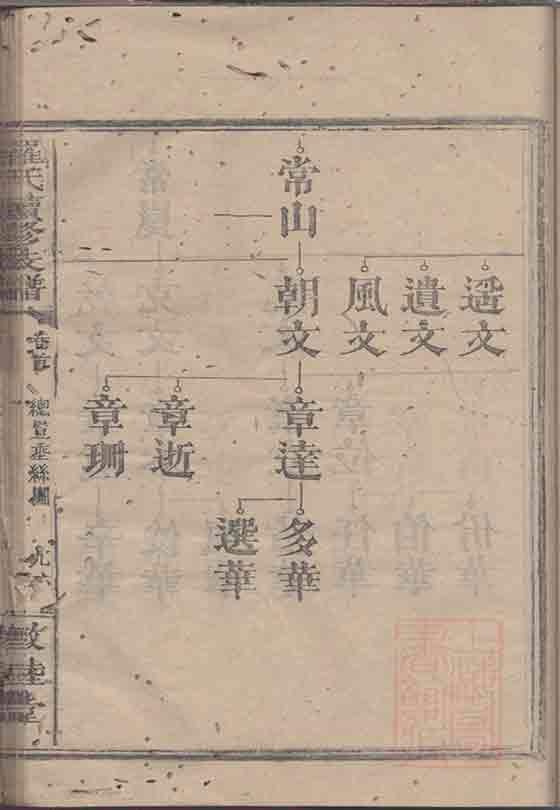 常山
遥文
遺文
風文
朝文
章達
章逝
章珊
多華
選華
羅氏續修支譜
卷首
總豎垂絲圖
敦睦堂